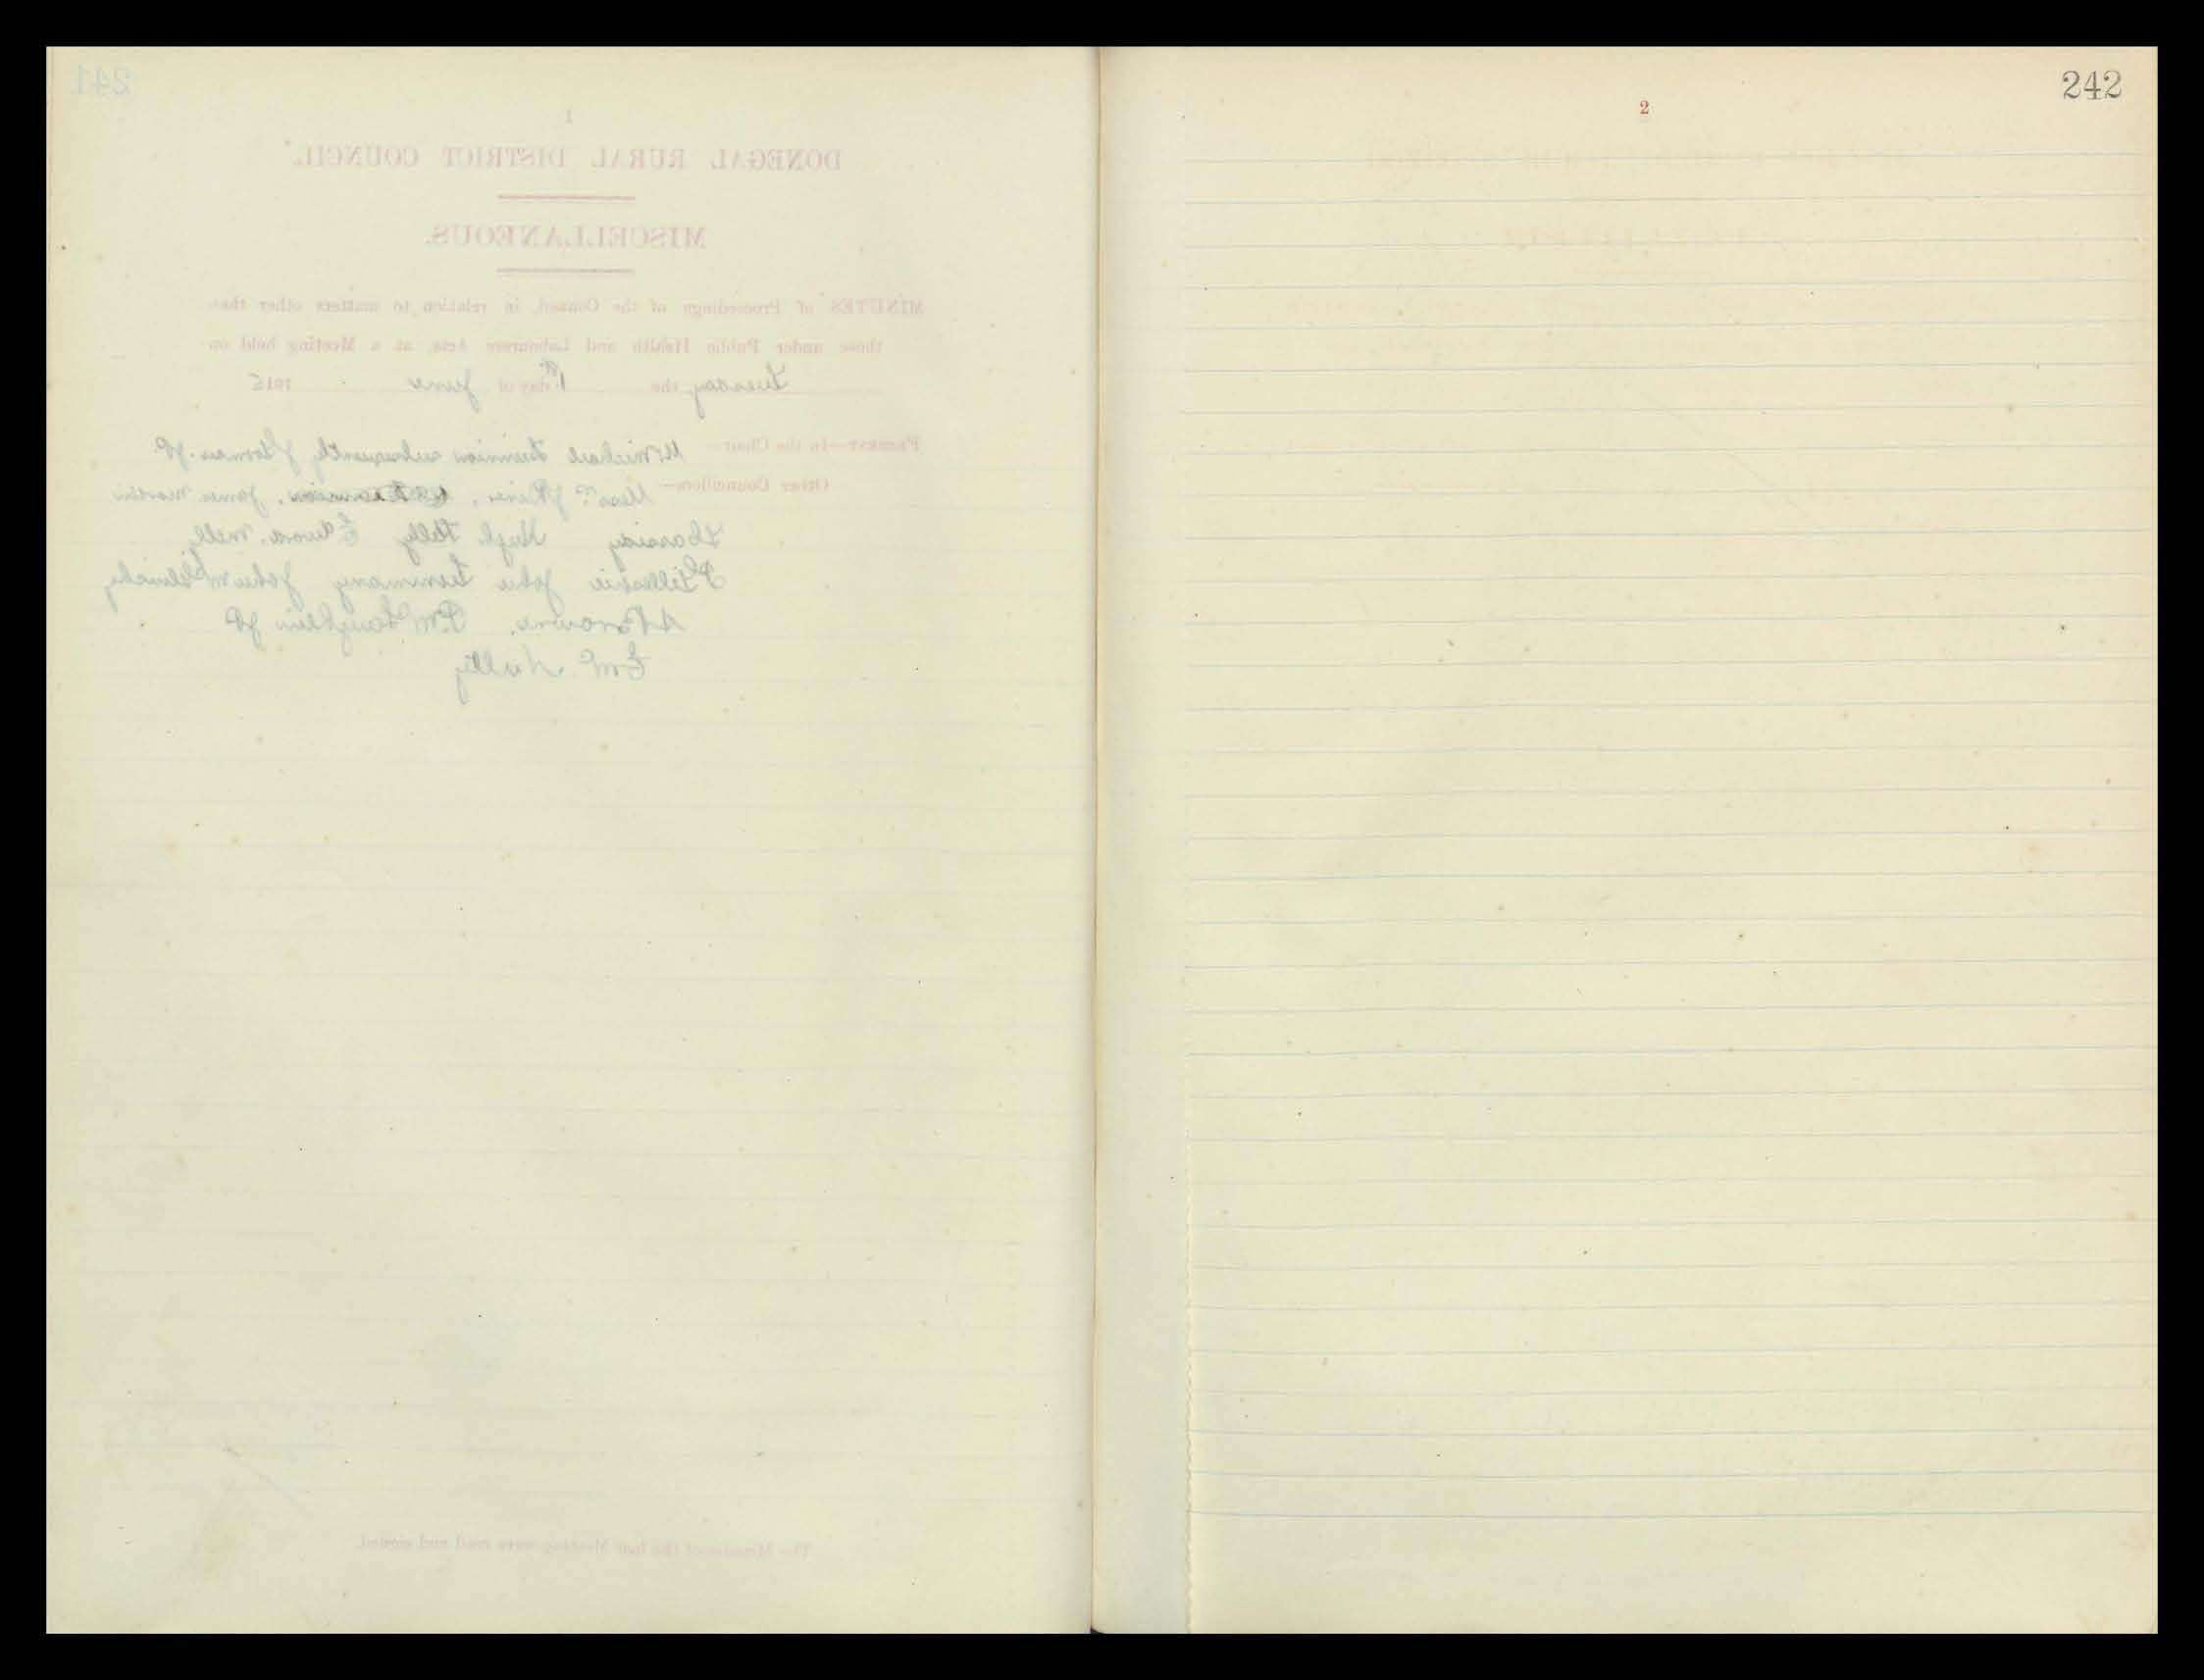 241
1
DONEGAL RURAL DISTRICT COUNCIL.
MISCELLANEOUS.
MINUTES of Proceedings of the Council in relation to matters other than
those under Public Health and Labourers Acts, at a Meeting held on
Tuesday the 1st day of June 1915
PRESENT—In the Chair— Mr Michael Timmion subsequently J Gorman JP
Other Councillors— Messrs James Martin
Cassidy Hugh Kelly Edward Mell
P Gillespie John Timmony John McGlinchy
A Browne, P. McLoughlin JP
E McNulty
The Minutes of the last Meeting were read and signed.
242
2